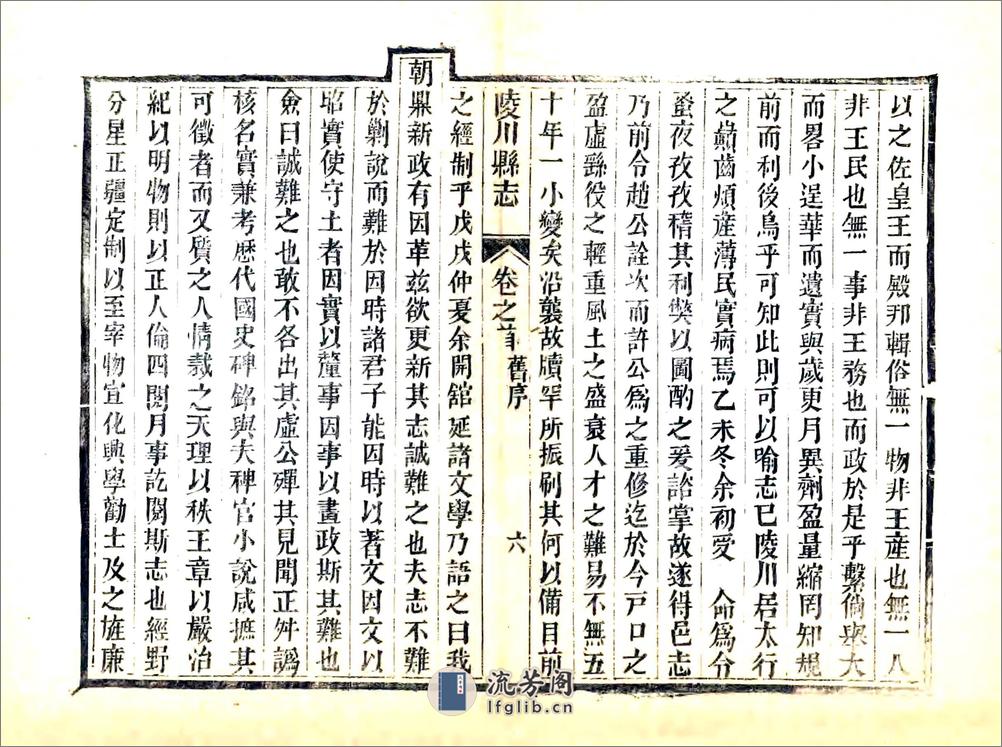 以之佐皇王而殿邦輯俗無一物非王産也無一人
非王民也無一事非王務也而政於是乎繫倘與大
而畧小逞華而遺實與歲更月異劑盈量縮罔知規
前而利後烏乎可知此則可以喻志已陵川居太行
之巔茵煩産薄民實病焉乙未冬余初受 命爲分
蚤夜孜孜稽其利弊以圖酌之爰諮掌故遂得邑志
乃前令趙公詮次而許公爲之重修迄於今戸口之
盈虛繇役之輕重風土之盛衰人才之難易不無五
十年一小變矣沿襲故牘罕所振刷其何以備目前
陵川縣志 卷之首 舊序 六
之經制乎戊戌仲夏余開舘延諸文學乃語之曰我
朝鼎新政有因革兹欲更新其志誠難之也夫志不難
於勦說而難於因時諸君子能因時以著文因文以
昭實使守土者因實以釐事因事以畫政斯其難也
僉曰誠難之也敢不各出其虛公殫其見聞正舛譌
核名實兼考歴代國史碑銘與夫稗官小說咸摭其
可徵者而又質之人情裁之天理以秩王章以嚴治
紀以明物則以正人倫四閱月事訖閱斯志也經野
分星正疆定制以至宰物宣化興學勸士及之旌廉
流芳阁
lfglib.cn